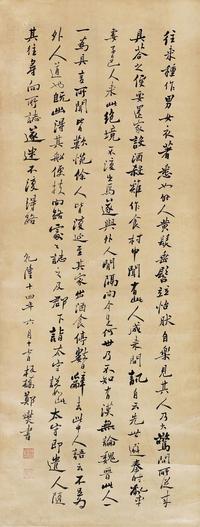 往來種作男女衣著悉如外人黃髮垂髫並怡然自樂見其人乃大驚問所從來
具答之便要還家設酒殺雞作食村中聞有此人咸來問訊自云先世避秦時亂率
妻子邑人來此絕境不復出焉遂與外人間隔問今是何世乃不知有漢無論魏晉此人一
一為具言所聞皆歎惋餘人皆復延至其家出酒食停數日辭去此中人語云不足為
外人道也既出得其船便扶向路處處誌之及郡下詣太守說如此太守即遣人隨
其往尋向所誌遂迷不復得路 乾隆十四年六月十 板橋鄭燮書